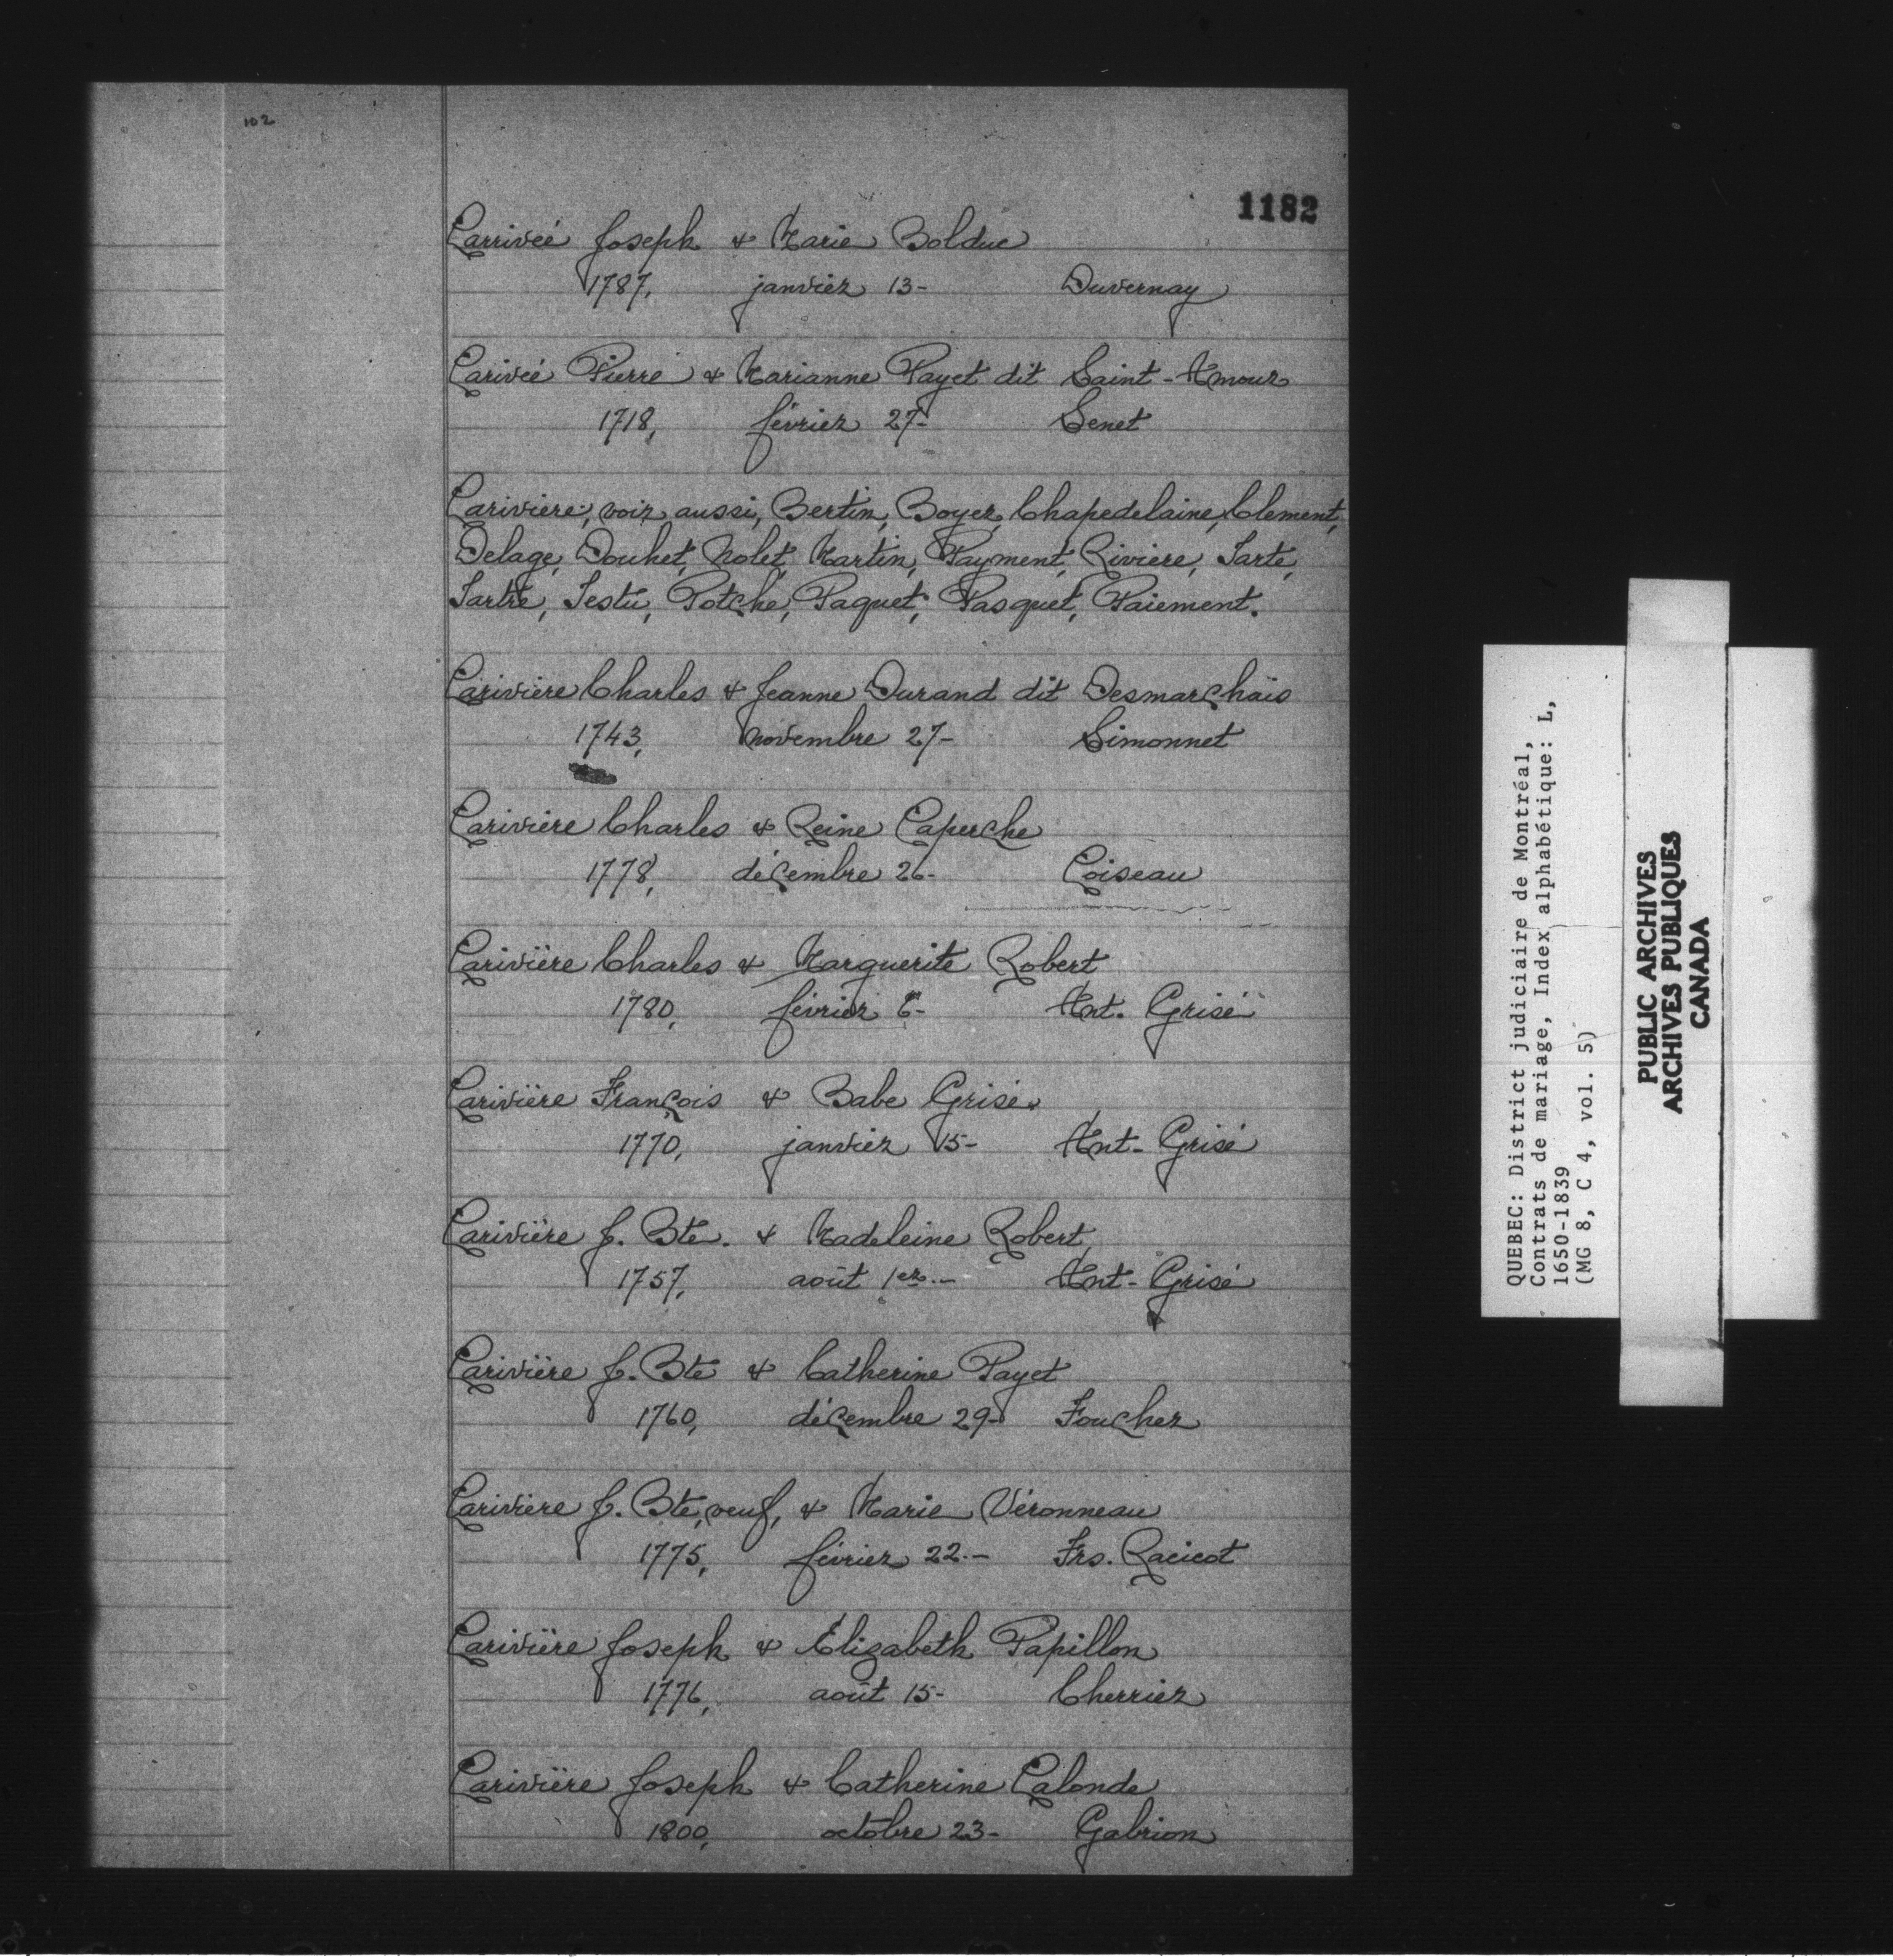 102
1182
Larrivée Joseph & Marie Bolduc
1787, janvier 13- Duvernay
Larivée Pierre & Marianne Payet dit Saint-Amour
1718, février 27- Senet
Larivière, voir aussi, Bertin, Boyer, Chapedelaine, Clement,
Delage, Douhet, Nolet, Martin, Payment, Riviere, Tarte,
Tartre, Testu, Potche, Paquet, Pasquet, Paiement.
Larivière Charles & Jeanne Durand dit Desmarchais
1743, novembre 27- Simonnet
Larivière Charles & Reine Laperche
1778, décembre 26- Loiseau
Larivière Charles & Marguerite Robert
1780, février 6- Ant. Grisé
Larivière François & Babe Grisé
1770, janvier 15- Ant- Grisé
Larivière J. Bte. & Madeleine Robert
1757, août 1er- Ant- Grisé
Larivière J. Bte & Catherine Payet
1760, décembre 29- Foucher
Larivière J. Bte, veuf, & Marie Véronneau
1775, février 22- Frs. Racicot
Larivière Joseph & Elizabeth Papillon
1776, août 15- Cherrier
Larivière Joseph & Catherine Lalonde
1800, octobre 23- Gabrion
QUEBEC: District judiciaire de Montréal,
Contrats de mariage, Index alphabétique: L,
1650-1839
(MG 8, C 4, vol. 5)
PUBLIC ARCHIVES
ARCHIVES PUBLIQUES
CANADA